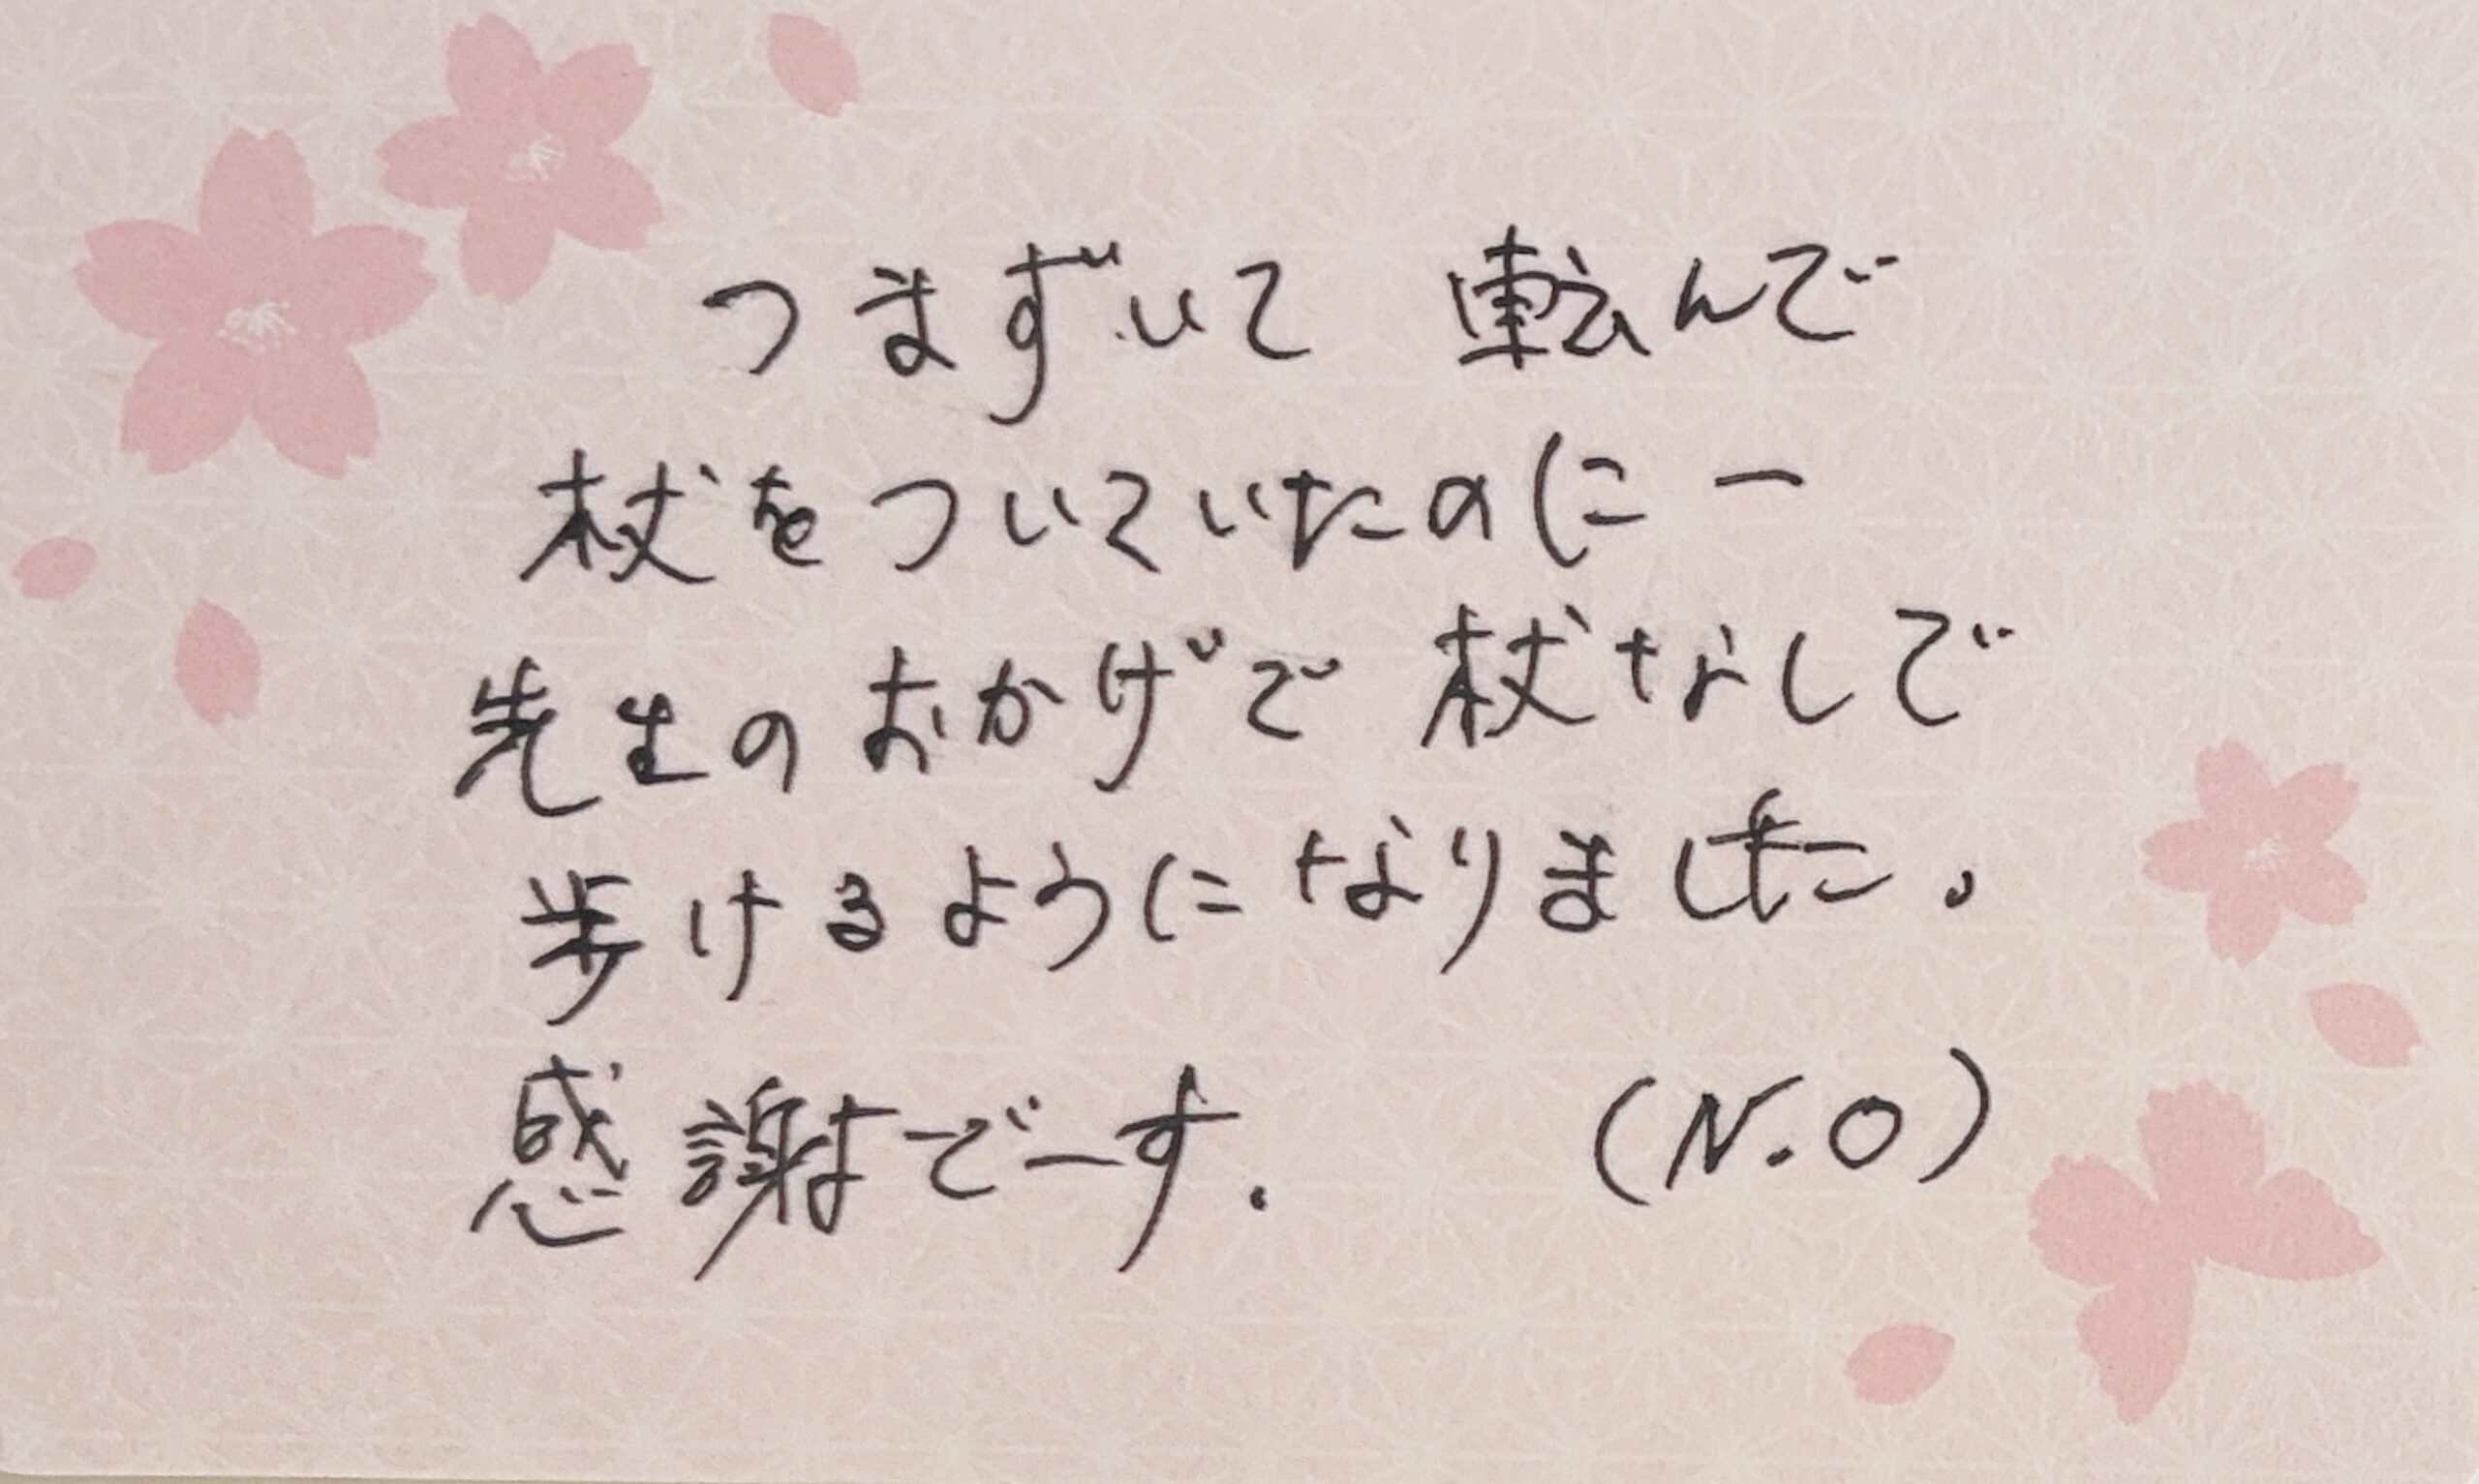 つまずいて 転んで
杖をついていたのにー
先生のおかげで 杖なしで
歩けるようになりました。
感謝でーす. (N.O)